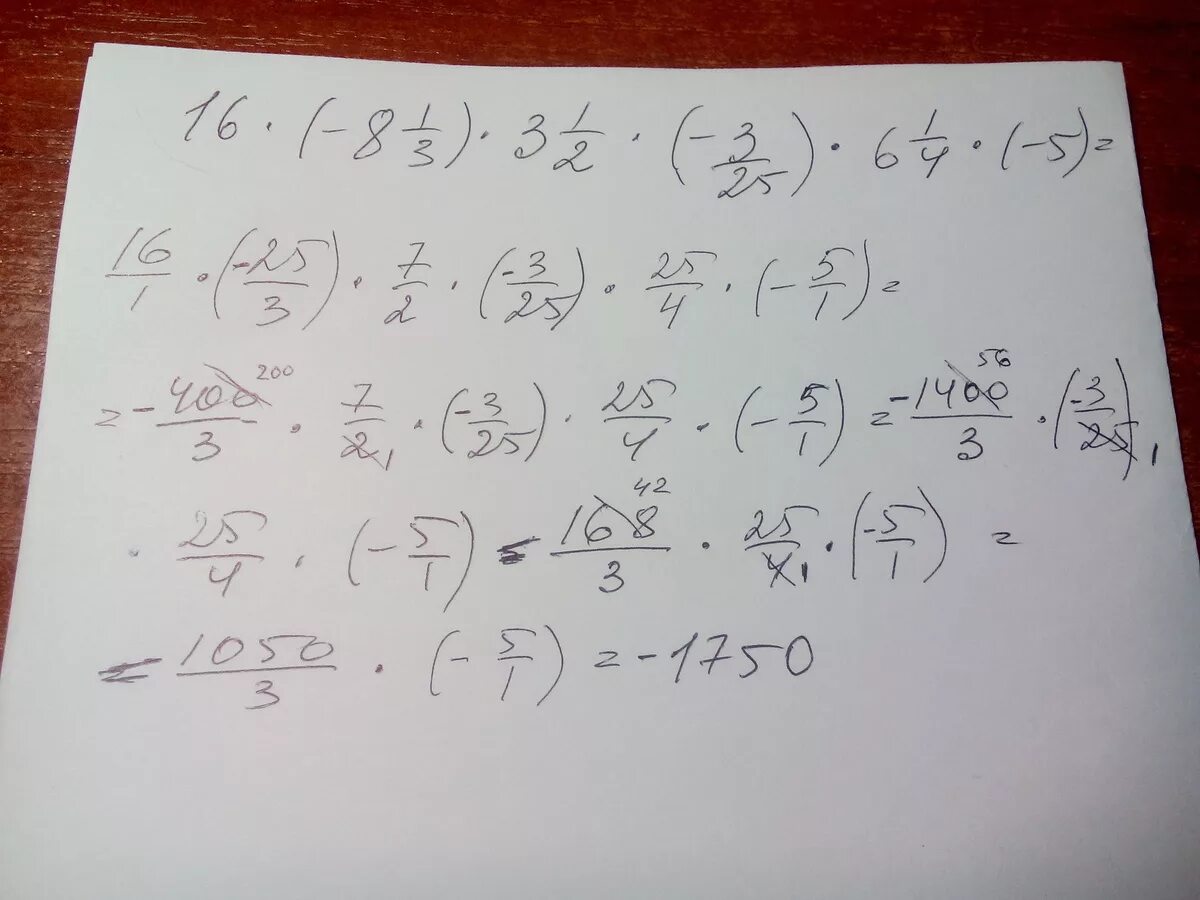 16 · (-8 1/3) · 3 1/2 · (-3/25) · 6 1/4 · (-5) =
16/1 · (-25/3) · 7/2 · (-3/25) · 25/4 · (-5/1) =
= -400/3 200 · 7/2 1 · (-3/25) · 25/4 · (-5/1) = -1400/3 56 · (-3/25) 1
· 25/4 · (-5/1) = 168/3 42 · 25/4 1 · (-5/1) =
= 1050/3 · (-5/1) = -1750